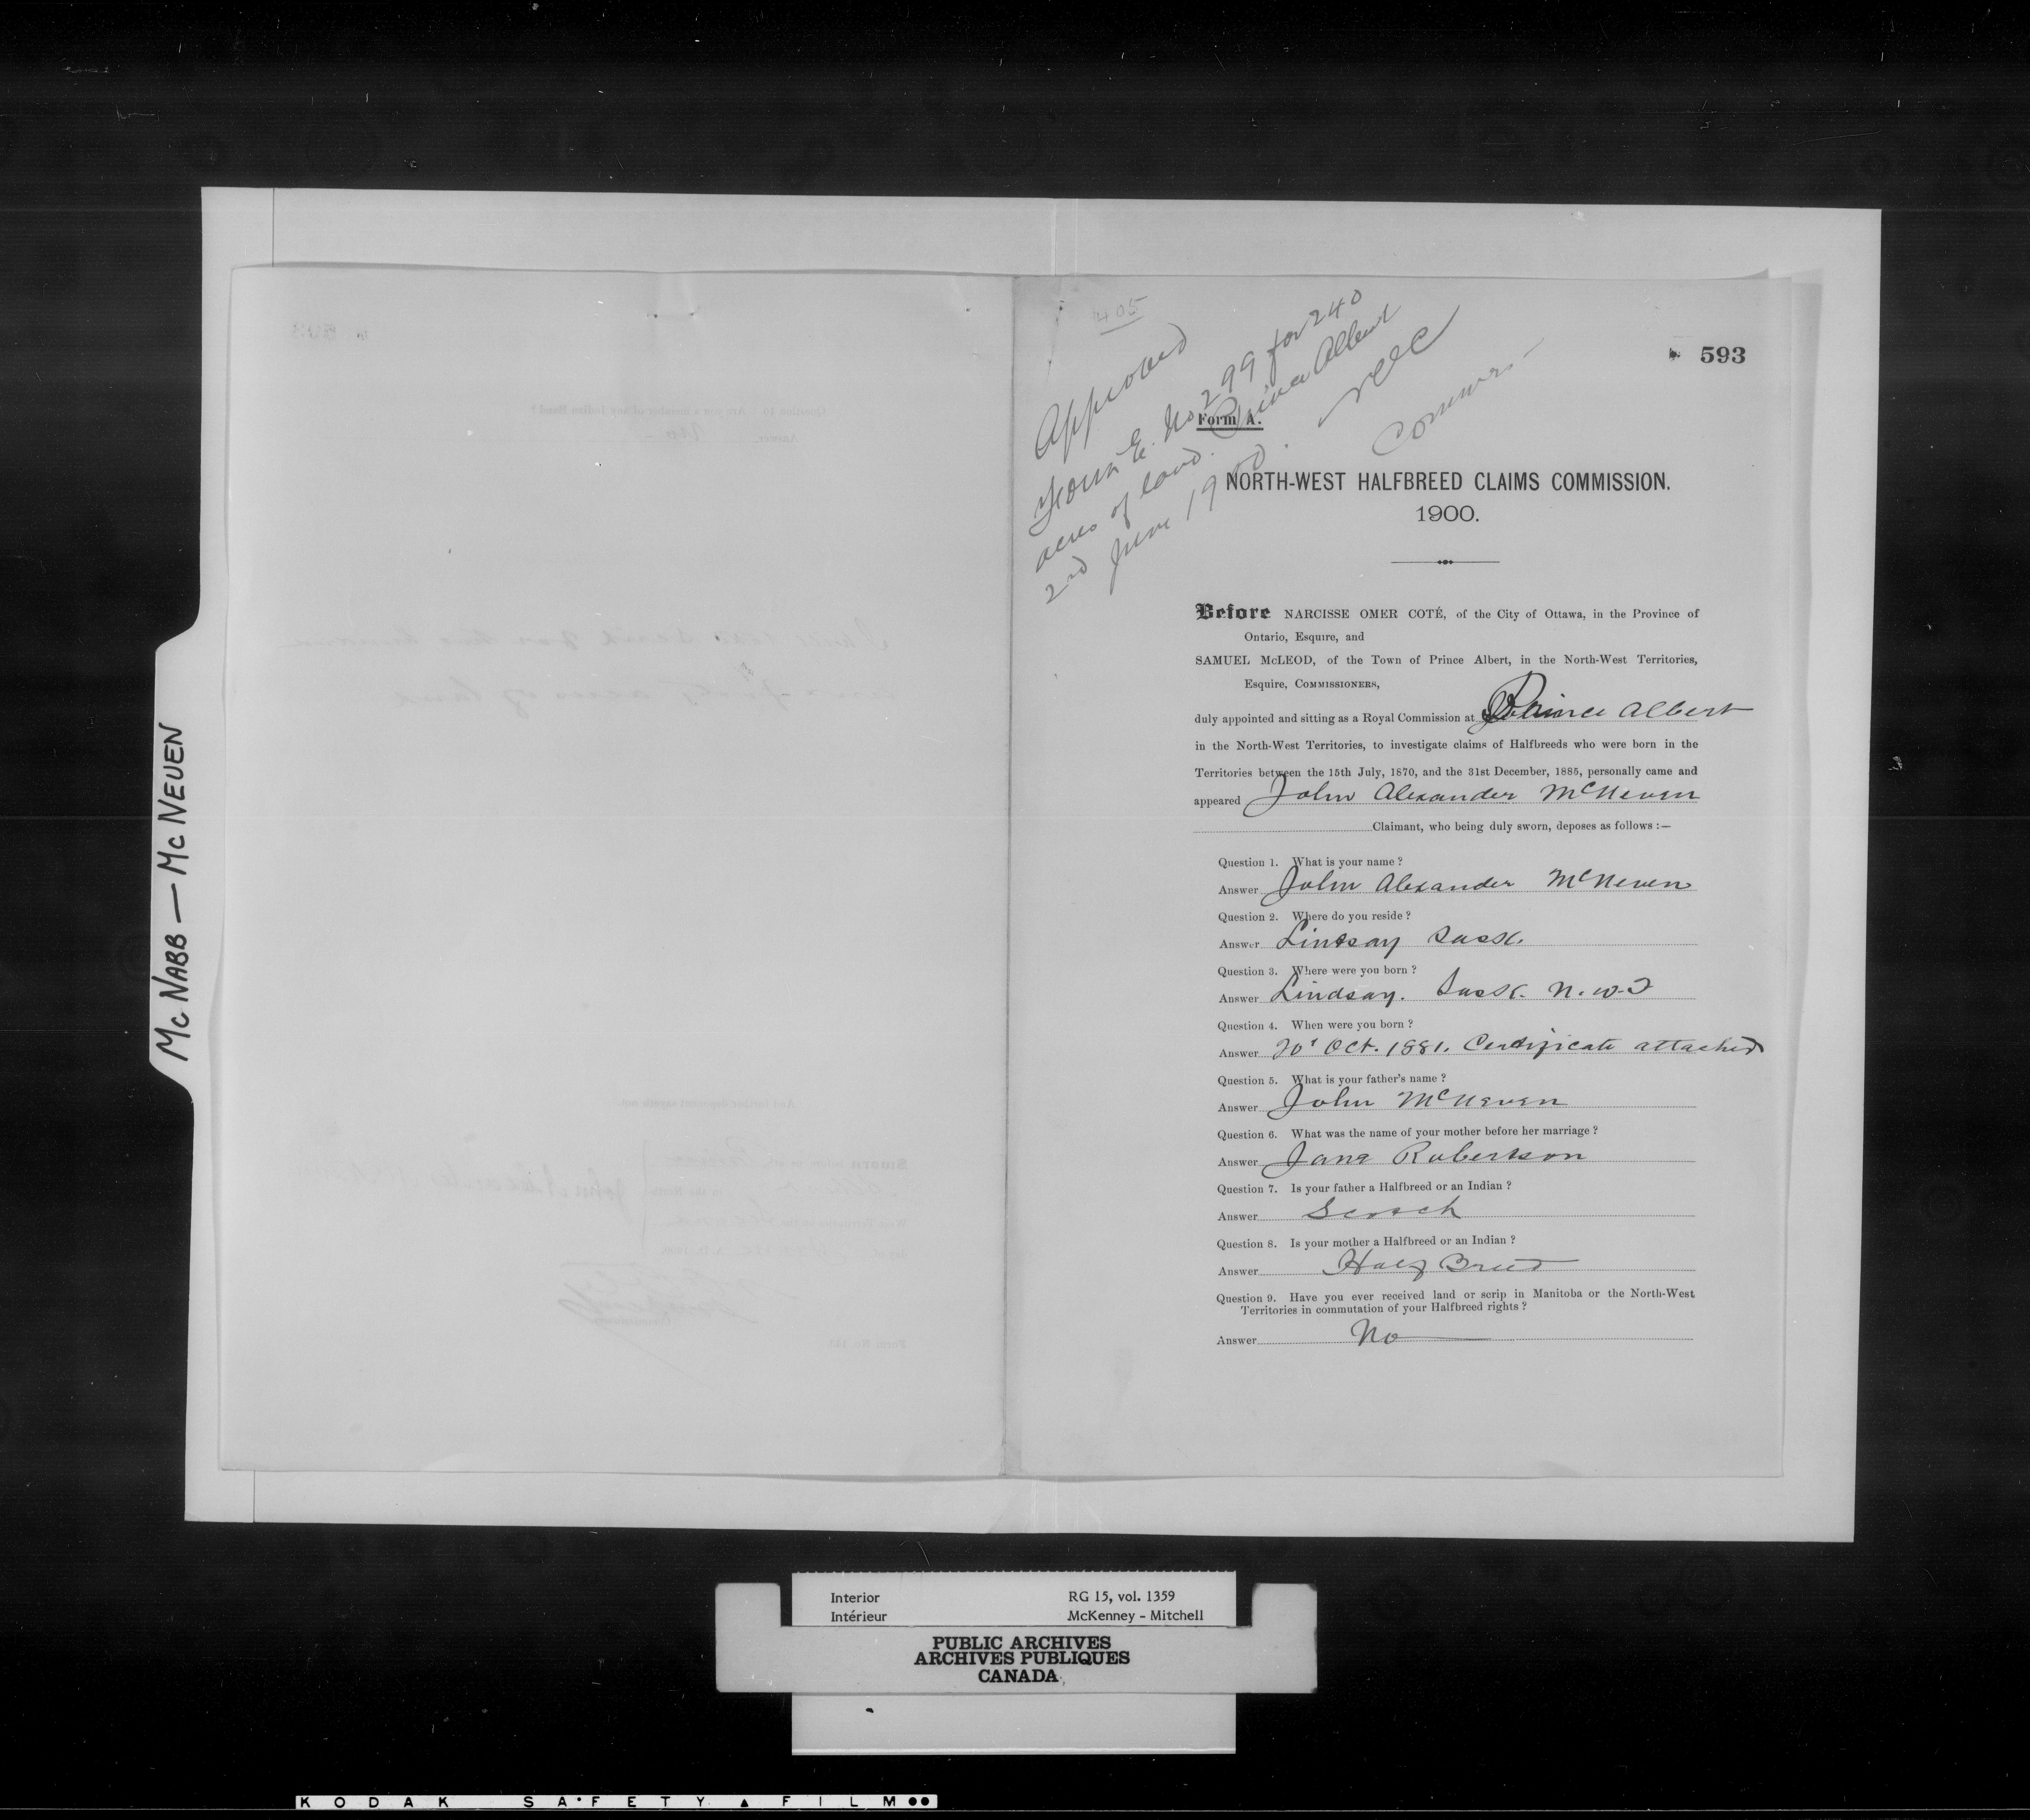 405
593
Approved
Form E. No 299 for 240
acres of land. Prince Albert
2nd June 1900. NOC
Commr.
Form A.
NORTH-WEST HALFBREED CLAIMS COMMISSION.
1900.
Before NARCISSE OMER COTÉ, of the City of Ottawa, in the Province of
Ontario, Esquire, and
SAMUEL McLEOD, of the Town of Prince Albert, in the North-West Territories,
Esquire, COMMISSIONERS,
duly appointed and sitting as a Royal Commission at Prince Albert
in the North-West Territories, to investigate claims of Halfbreeds who were born in the
Territories between the 15th July, 1870, and the 31st December, 1885, personally came and
appeared John Alexander McNeven
Claimant, who being duly sworn, deposes as follows :—
Question 1. What is your name ?
Answer John Alexander McNeven
Question 2. Where do you reside ?
Answer Lindsay Sask.
Question 3. Where were you born ?
Answer Lindsay. Sask. N.W.T
Question 4. When were you born ?
Answer 20' Oct. 1881. Certificate attached
Question 5. What is your father's name ?
Answer John McNeven
Question 6. What was the name of your mother before her marriage ?
Answer Jane Robertson
Question 7. Is your father a Halfbreed or an Indian ?
Answer Scotch
Question 8. Is your mother a Halfbreed or an Indian ?
Answer Half Breed
Question 9. Have you ever received land or scrip in Manitoba or the North-West
Territories in commutation of your Halfbreed rights ?
Answer No
McNABB — McNEUEN
Interior RG 15, vol. 1359
Intérieur McKenney - Mitchell
PUBLIC ARCHIVES
ARCHIVES PUBLIQUES
CANADA
KODAK SAFETY FILM